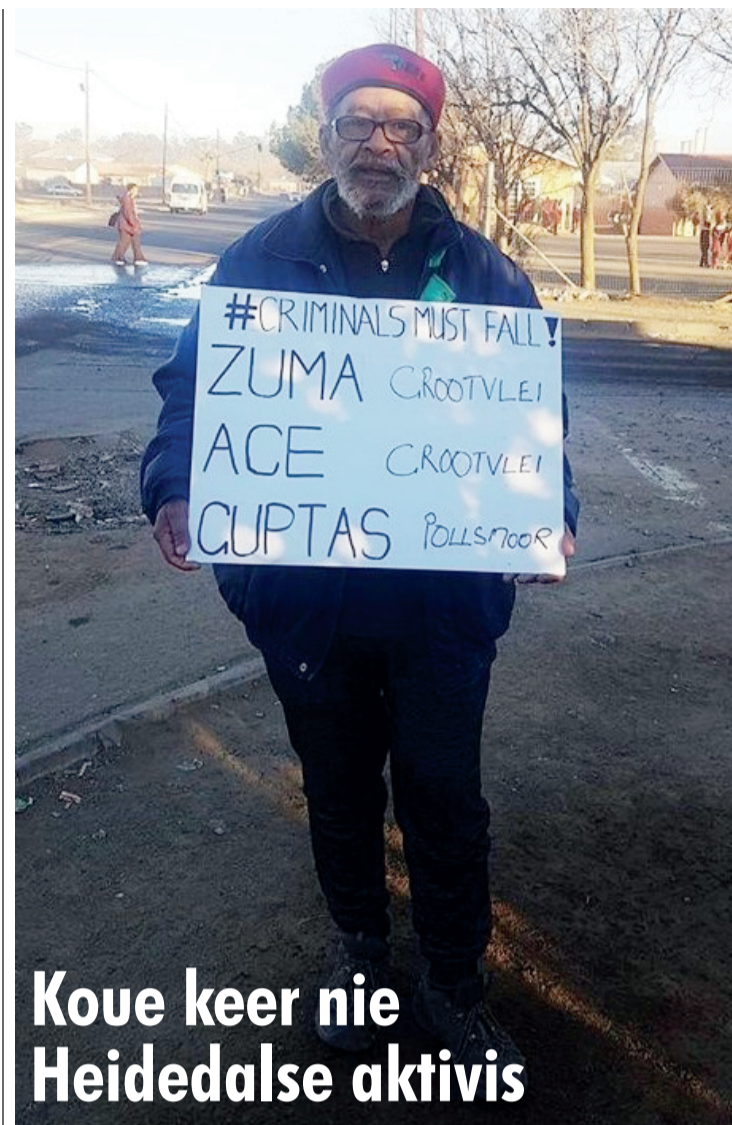 #CRIMINALS MUST FALL!
ZUMA GROOTVLEI
ACE GROOTVLEI
GUPTAS POLLSMOOR
Koue keer nie
Heidedalse aktivis